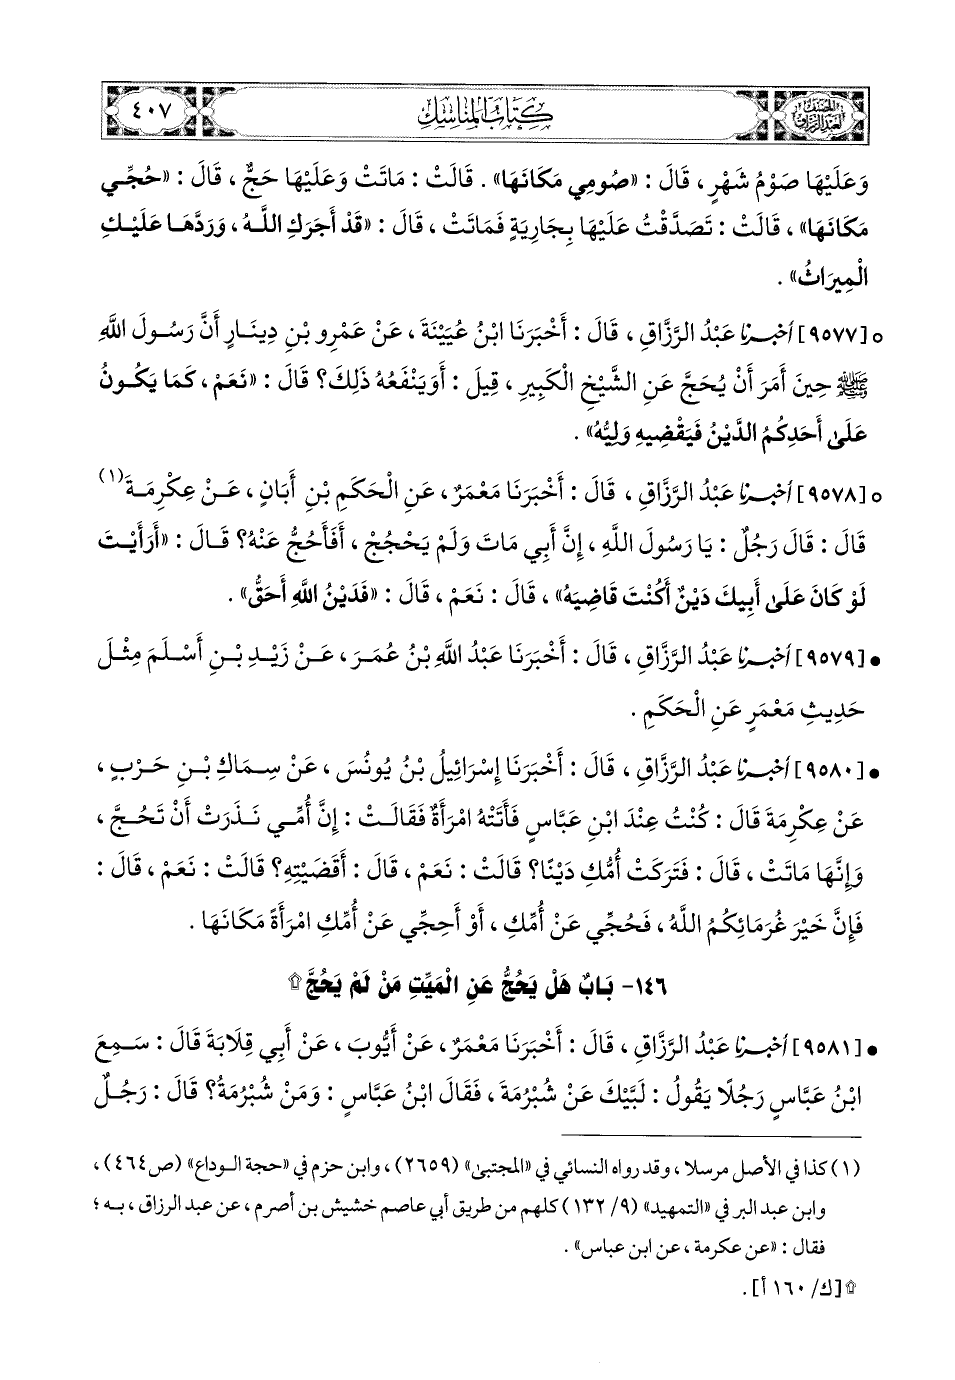 المصنف لعبد الرزاق
كتاب المناسك
٤٠٧
وَعَلَيْهَا صَوْمُ شَهْرٍ ، قَالَ : «صُومِي مَكَانَهَا» . قَالَتْ : مَاتَتْ وَعَلَيْهَا حَجٌّ ، قَالَ : «حُجِّي
مَكَانَهَا» ، قَالَتْ : تَصَدَّقْتُ عَلَيْهَا بِجَارِيَةٍ فَمَاتَتْ ، قَالَ : «قَدْ أَجَرَكِ اللَّهُ ، وَرَدَّهَا عَلَيْكِ
الْمِيرَاثُ» .
o [٩٥٧٧] أخبرنا عَبْدُ الرَّزَّاقِ ، قَالَ : أَخْبَرَنَا ابْنُ عُيَيْنَةَ ، عَنْ عَمْرِو بْنِ دِينَارٍ أَنَّ رَسُولَ اللَّهِ
ﷺ حِينَ أَمَرَ أَنْ يُحَجَّ عَنِ الشَّيْخِ الْكَبِيرِ ، قِيلَ : أَوَيَنْفَعُهُ ذَلِكَ؟ قَالَ : «نَعَمْ ، كَمَا يَكُونُ
عَلَى أَحَدِكُمُ الدَّيْنُ فَيَقْضِيهِ وَلِيُّهُ» .
o [٩٥٧٨] أخبرنا عَبْدُ الرَّزَّاقِ ، قَالَ : أَخْبَرَنَا مَعْمَرٌ ، عَنِ الْحَكَمِ بْنِ أَبَانٍ ، عَنْ عِكْرِمَةَ (١)
قَالَ : قَالَ رَجُلٌ : يَا رَسُولَ اللَّهِ ، إِنَّ أَبِي مَاتَ وَلَمْ يَحْجُجْ ، أَفَأَحُجُّ عَنْهُ؟ قَالَ : «أَرَأَيْتَ
لَوْ كَانَ عَلَى أَبِيكَ دَيْنٌ أَكُنْتَ قَاضِيَهُ» ، قَالَ : نَعَمْ ، قَالَ : «فَدَيْنُ اللَّهِ أَحَقُّ» .
• [٩٥٧٩] أخبرنا عَبْدُ الرَّزَّاقِ ، قَالَ : أَخْبَرَنَا عَبْدُ اللَّهِ بْنُ عُمَرَ ، عَنْ زَيْدِ بْنِ أَسْلَمَ مِثْلَ
حَدِيثِ مَعْمَرٍ عَنِ الْحَكَمِ .
• [٩٥٨٠] أخبرنا عَبْدُ الرَّزَّاقِ ، قَالَ : أَخْبَرَنَا إِسْرَائِيلُ بْنُ يُونُسَ ، عَنْ سِمَاكِ بْنِ حَرْبٍ ،
عَنْ عِكْرِمَةَ قَالَ : كُنْتُ عِنْدَ ابْنِ عَبَّاسٍ فَأَتَتْهُ امْرَأَةٌ فَقَالَتْ : إِنَّ أُمِّي نَذَرَتْ أَنْ تَحُجَّ ،
وَإِنَّهَا مَاتَتْ ، قَالَ : فَتَرَكَتْ أُمُّكِ دَيْنًا؟ قَالَتْ : نَعَمْ ، قَالَ : أَقَضَيْتِهِ؟ قَالَتْ : نَعَمْ ، قَالَ :
فَإِنَّ خَيْرَ غُرَمَائِكُمُ اللَّهُ ، فَحُجِّي عَنْ أُمِّكِ ، أَوْ أَحِجِّي عَنْ أُمِّكِ امْرَأَةً مَكَانَهَا .
١٤٦- بَابٌ هَلْ يَحُجُّ عَنِ الْمَيِّتِ مَنْ لَمْ يَحُجَّ ۩
• [٩٥٨١] أخبرنا عَبْدُ الرَّزَّاقِ ، قَالَ : أَخْبَرَنَا مَعْمَرٌ ، عَنْ أَيُّوبَ ، عَنْ أَبِي قِلَابَةَ قَالَ : سَمِعَ
ابْنُ عَبَّاسٍ رَجُلًا يَقُولُ : لَبَّيْكَ عَنْ شُبْرُمَةَ ، فَقَالَ ابْنُ عَبَّاسٍ : وَمَنْ شُبْرُمَةُ؟ قَالَ : رَجُلٌ
(١) كذا في الأصل مرسلا ، وقد رواه النسائي في «المجتبى» (٢٦٥٩) ، وابن حزم في «حجة الوداع» (ص٤٦٤) ،
وابن عبد البر في «التمهيد» (٩/ ١٣٢) كلهم من طريق أبي عاصم خشيش بن أصرم ، عن عبد الرزاق ، به ؛
فقال : «عن عكرمة ، عن ابن عباس» .
۩ [ك/ ١٦٠ أ] .